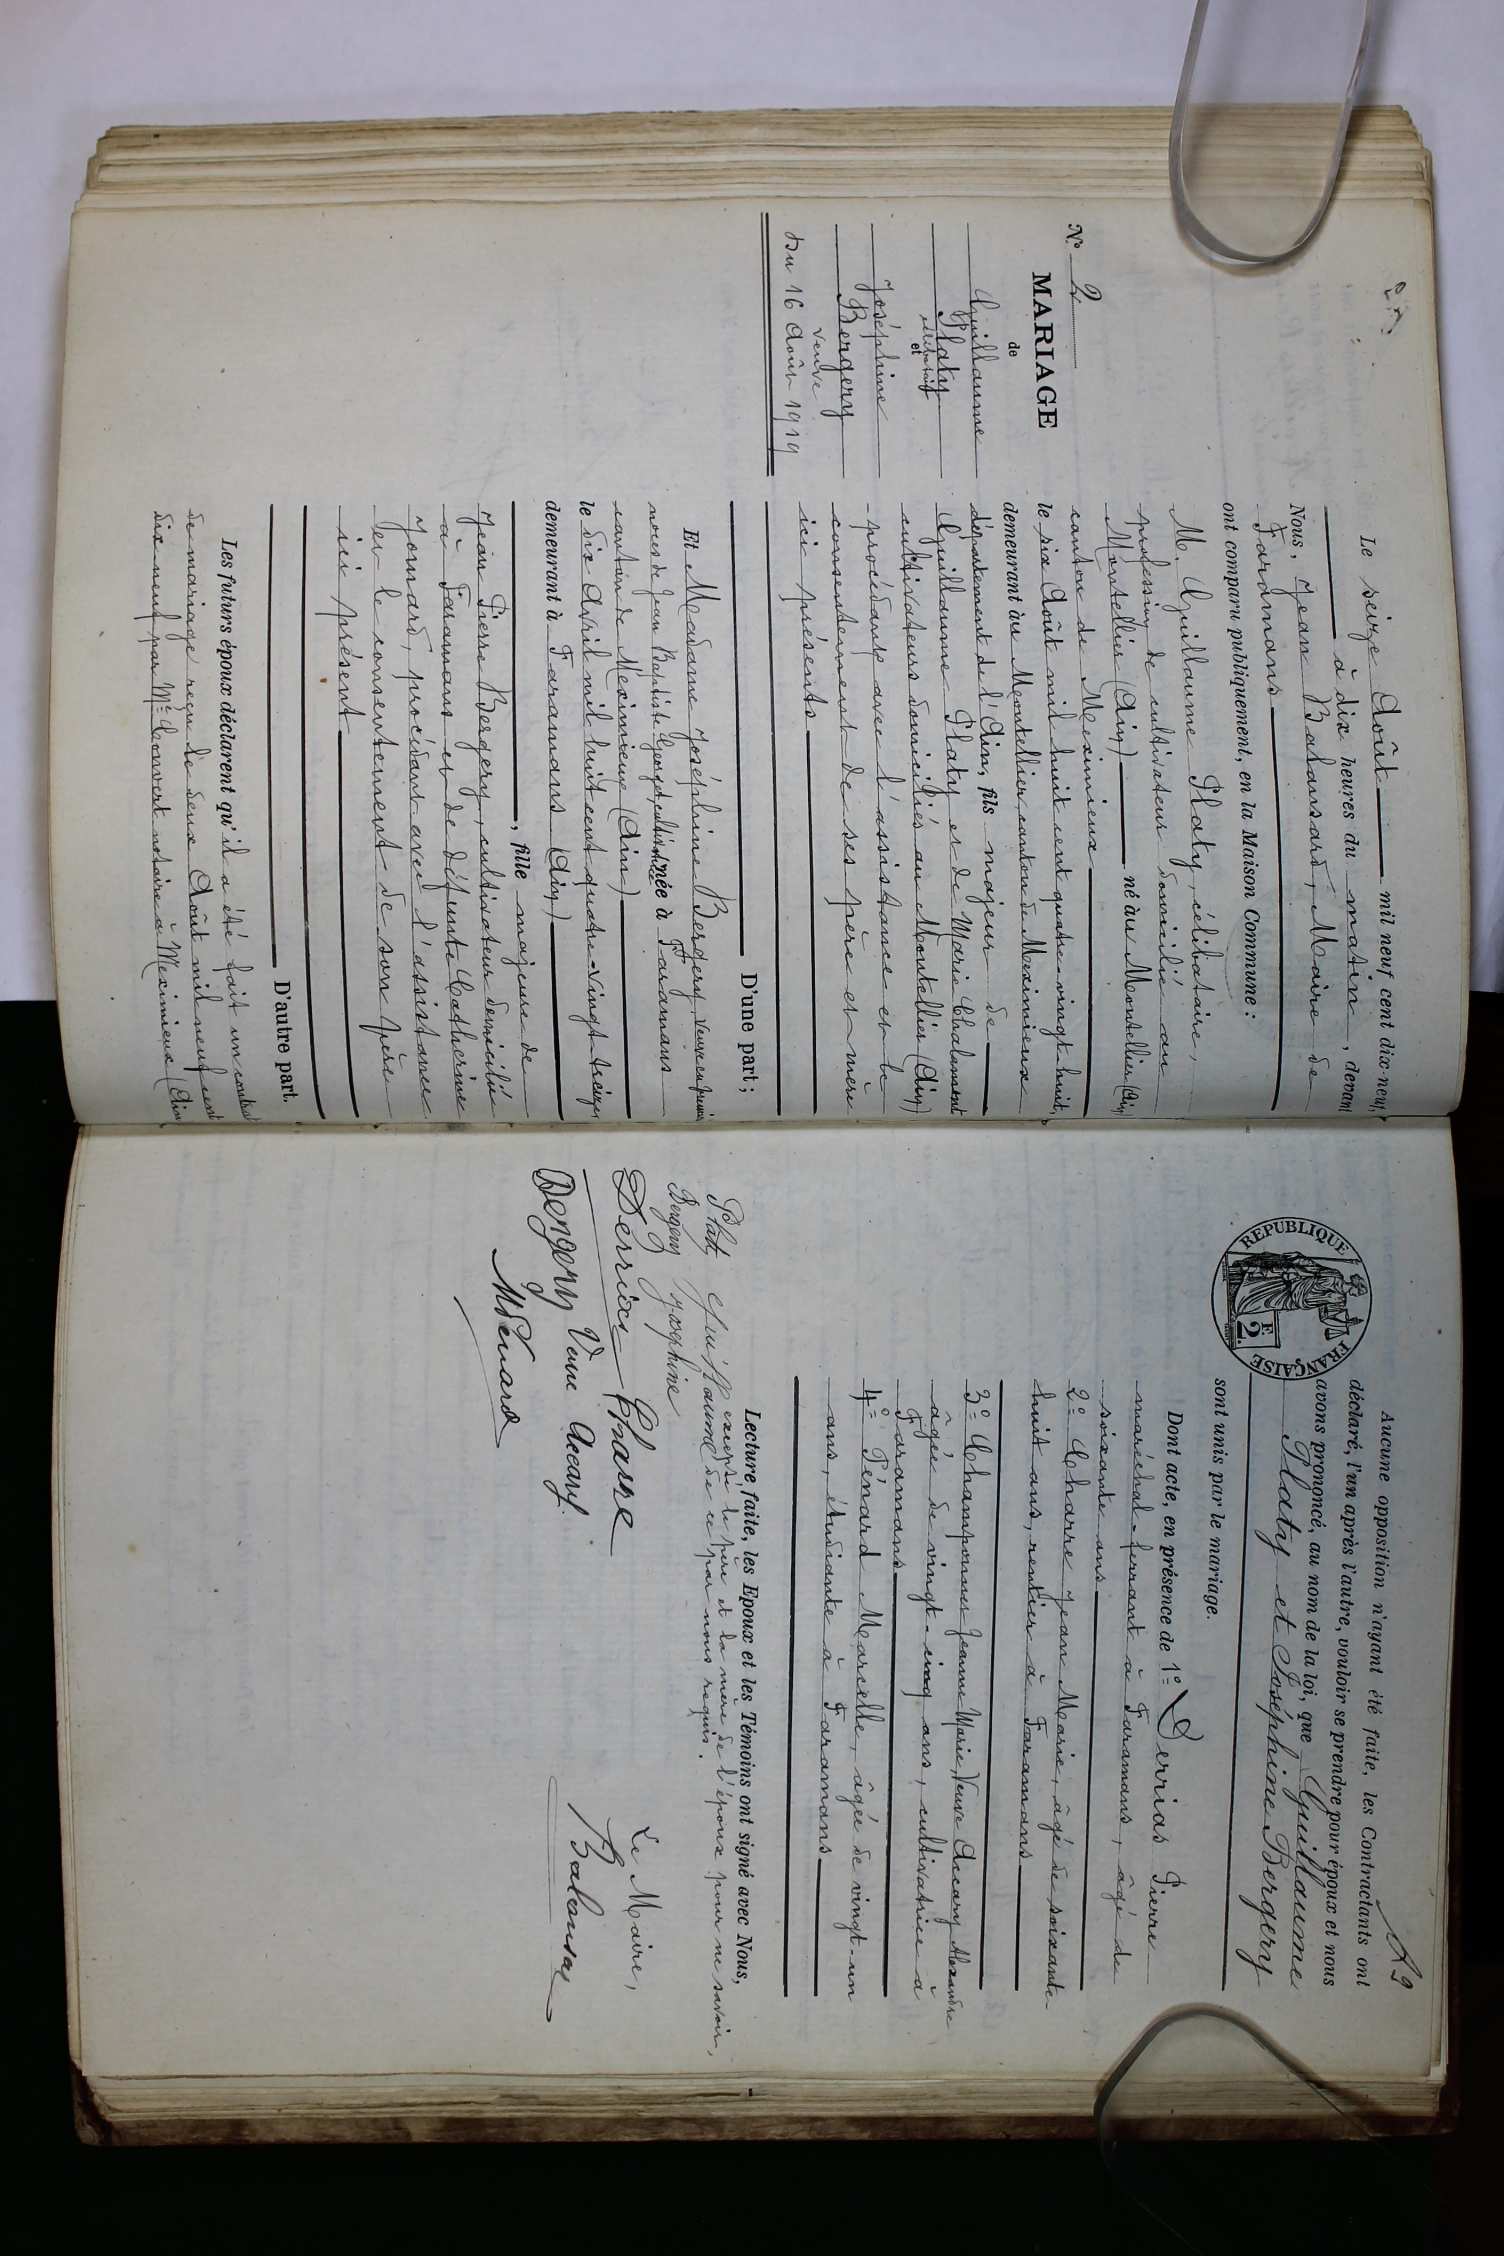 N° 2
MARIAGE
de
Guillaume
Platy
célibataire
et
Joséphine
Bergery
veuve
Du 16 Août 1919
Le seize Août mil neuf cent dix-neuf,
à dix heures du matin, devant
Nous, Jean Balansard, Maire de
Faramans
ont comparu publiquement, en la Maison Commune :
M. Guillaume Platy, célibataire,
profession de cultivateur domicilié au
Montellier (Ain) né au Montellier (Ain)
canton de Meximieux
le six Août mil huit cent quatre-vingt-huit,
demeurant au Montellier canton de Meximieux
département de l'Ain, fils majeur de
Guillaume Platy et de Marie Chalamont
cultivateurs domiciliés au Montellier (Ain)
procédant avec l'assistance et le
consentement de ses père et mère
ici présents
D'une part ;
Et Madame Joséphine Bergery, veuve en
noces de Jean Baptiste née à Faramans
canton de Meximieux (Ain)
le dix Avril mil huit cent quatre-vingt-treize,
demeurant à Faramans (Ain)
, fille majeure de
Jean Pierre Bergery, cultivateur domicilié
à Faramans et de défunte Catherine
Jomard, procédant avec l'assistance
et le consentement de son père
ici présent
D'autre part.
Les futurs époux déclarent qu'il a été fait un contrat
de mariage reçu le deux Août mil neuf cent
dix neuf par Me Convert notaire à Meximieux (Ain
29
Aucune opposition n'ayant été faite, les Contractants ont
déclaré, l'un après l'autre, vouloir se prendre pour époux et nous
avons prononcé, au nom de la loi, que Guillaume
Platy et Joséphine Bergery
sont unis par le mariage.
REPUBLIQUE FRANÇAISE
2 F.
Dont acte, en présence de 1° Derrias Pierre
maréchal-ferrant à Faramans, âgé de
soixante ans
2° Charre Jean Marie, âgé de soixante-
huit ans, rentier à Faramans
3° Champonnes Jeanne Marie, Veuve Accary Alexandre
âgée de vingt-cinq ans, cultivatrice à
Faramans
4° Pénard Marcelle, âgée de vingt-un
ans, étudiante à Faramans
Lecture faite, les Epoux et les Témoins ont signé avec Nous,
excepté le père et la mère de l'époux pour ne savoir,
de ce par nous requis.
Platy Guillaume
Bergery Joséphine
Derrias Charre
Bergery Veuve Accary
M Penard
Le Maire,
Balansard